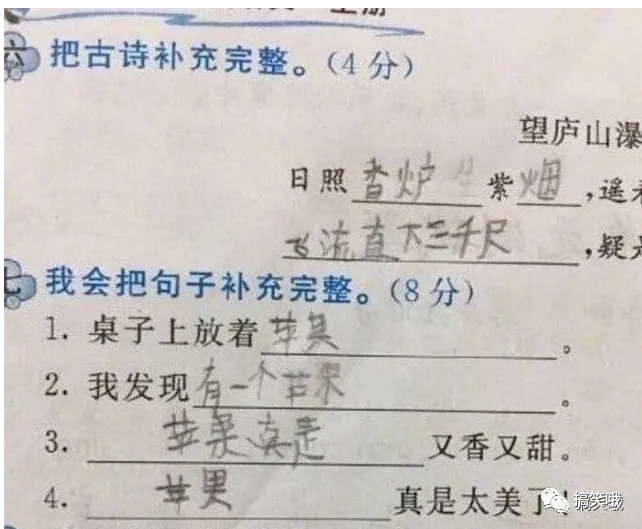 六 把古诗补充完整。(4分)
望庐山瀑
日照香炉生紫烟,遥
飞流直下三千尺,疑是
七 我会把句子补充完整。(8分)
1. 桌子上放着苹果。
2. 我发现有一个苹果。
3. 苹果真是又香又甜。
4. 苹果真是太美了!
搞笑哦